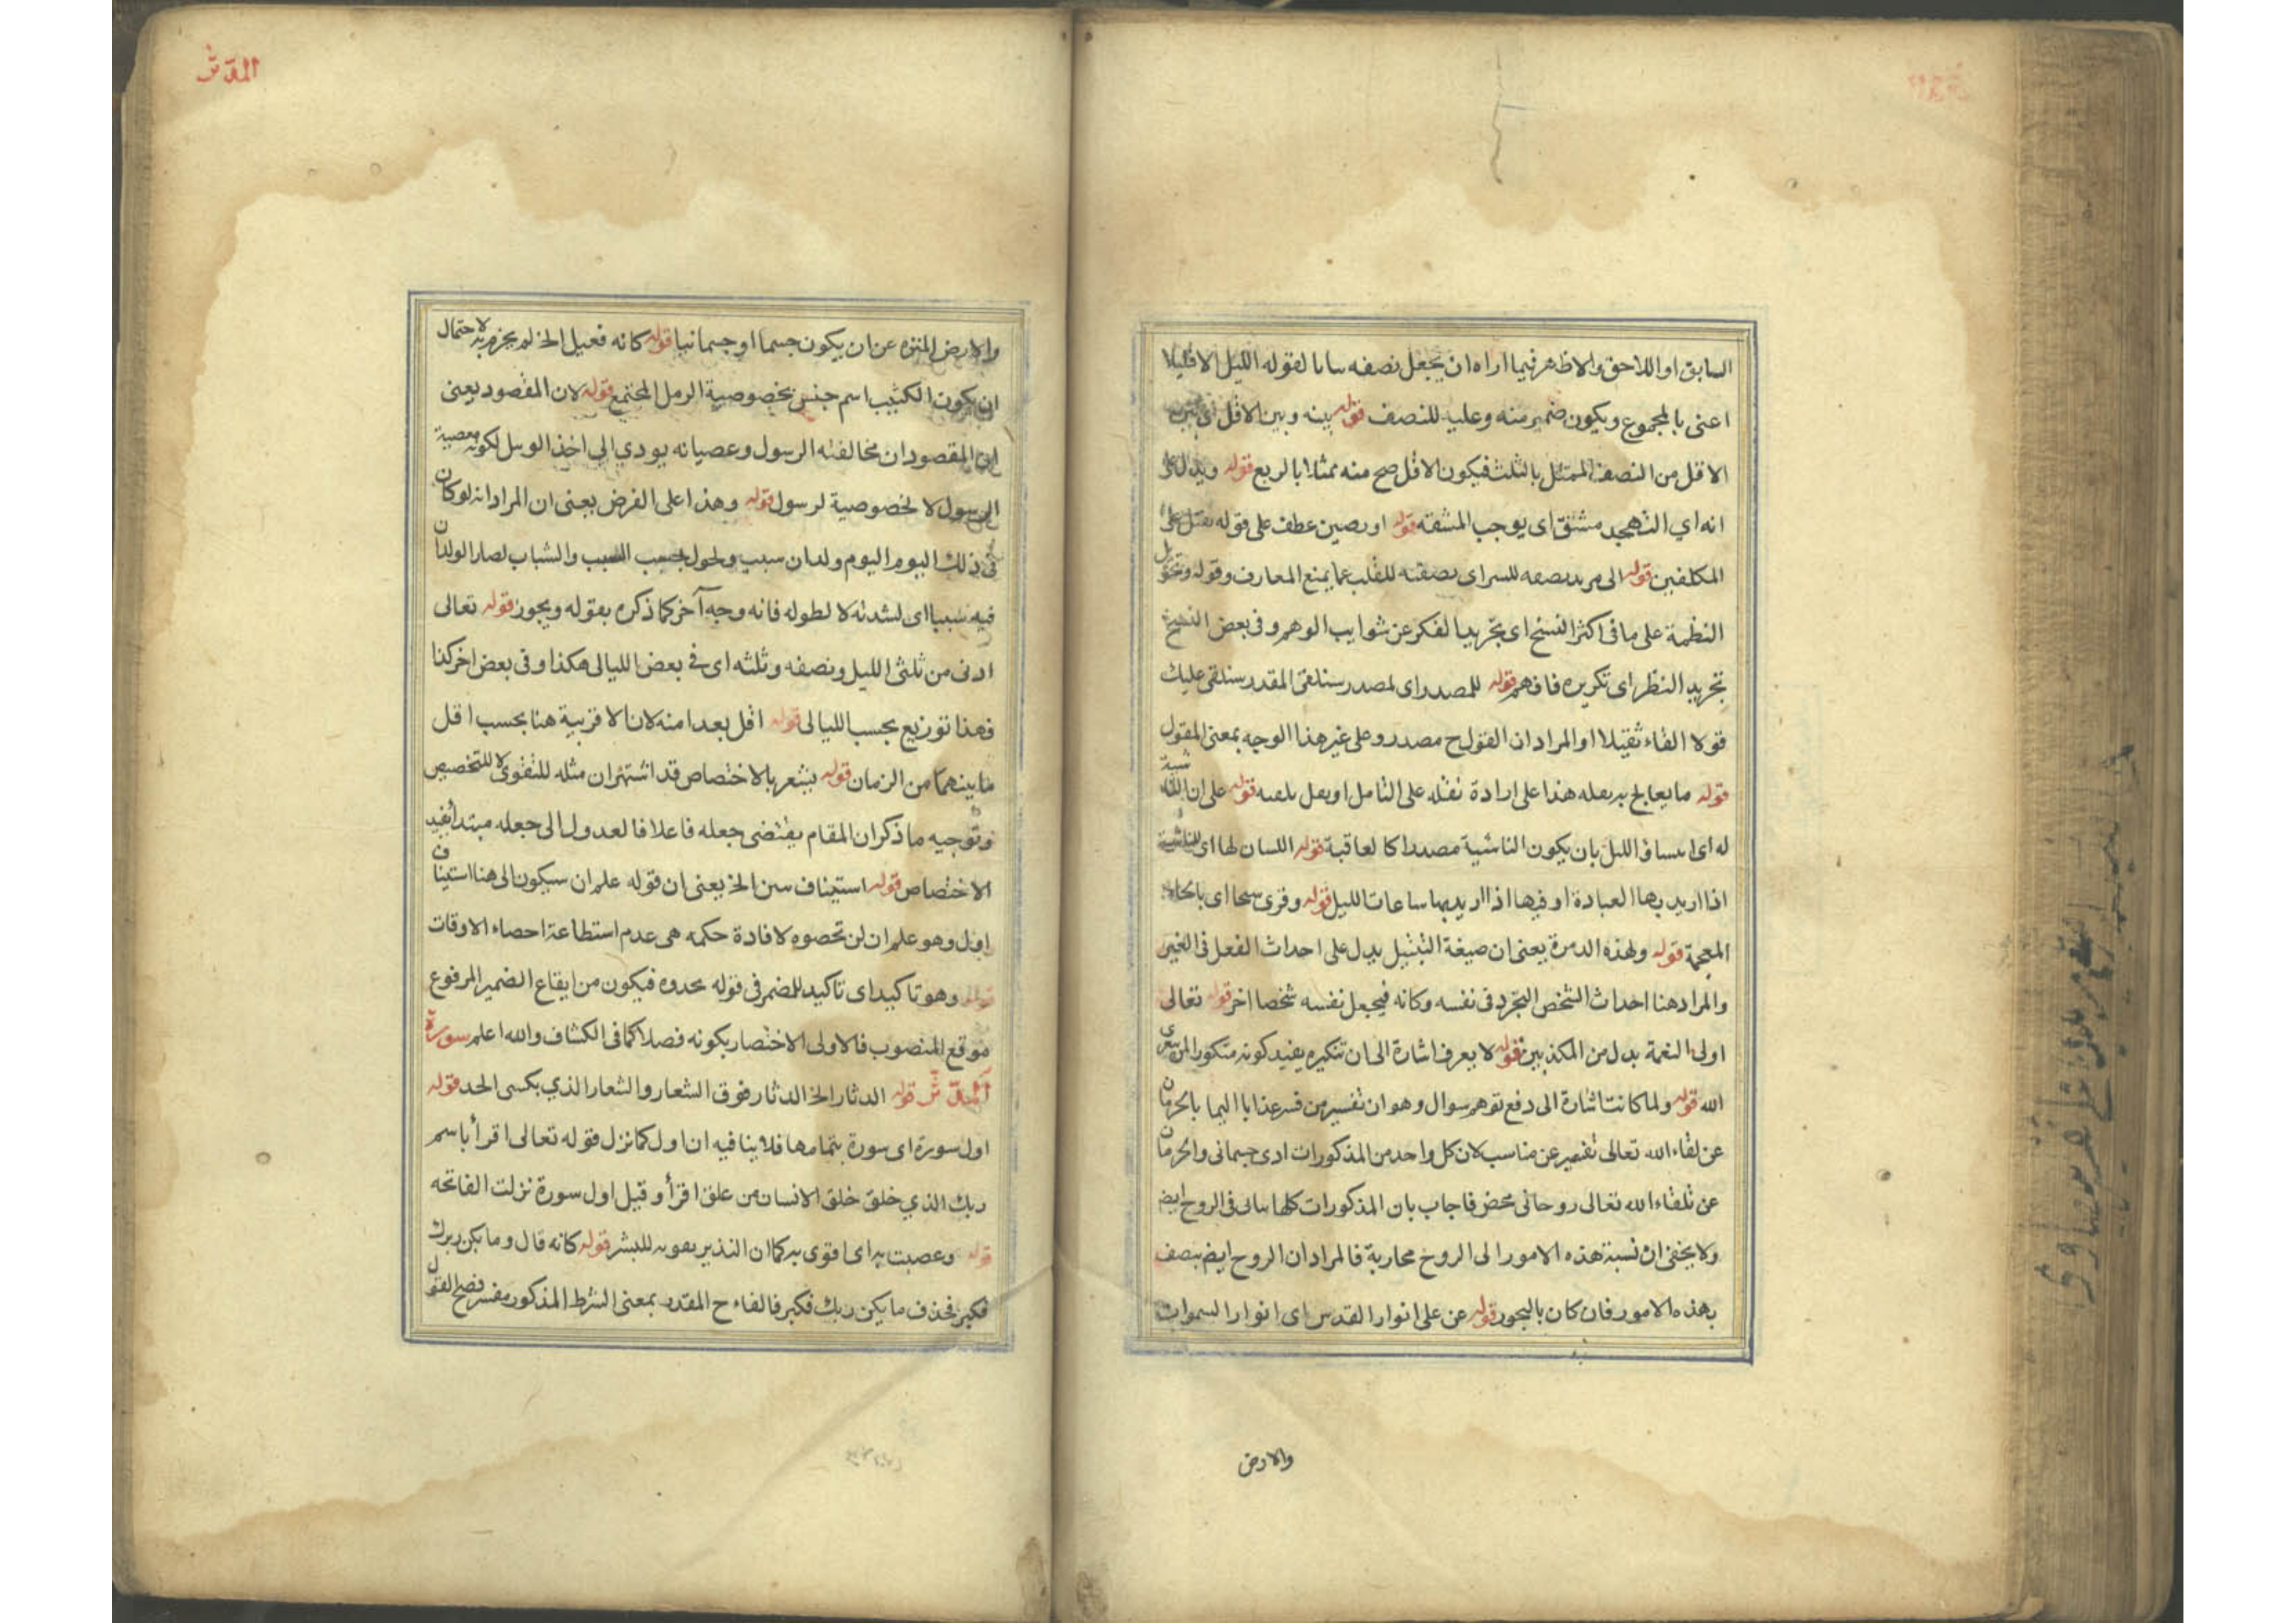 السابق او اللاحق والاظهر فيما اراه ان يجعل نصفه بيانا لقوله الليل الا قليلا
اعنى بالمجموع ويكون ضمير منه وعليه للنصف قوله بينه وبين الاقل اى بين
الاقل من النصف الممثل بالثلث فيكون الاقل صح منه ممثلا بالربع قوله ويدل على
انه اي التهجد مشتق اى يوجب المشقة قوله او رصين عطف على قوله يثقل على
المكلفين قوله الى مزيد تصفيه للسر اى تصفيته للقلب عما يمنع المعارف وقوله وتحويل
النظمة على ما فى اكثر النسخ اى تجريد الفكر عن شوايب الوهم وفى بعض النسخ
تجريد النظر اى تكريره فافهم قوله للمصدر اى لمصدر سنلقى المقدر سنلقى عليك
قولا القاء ثقيلا او المراد ان القول ح مصدر وعلى غير هذا الوجه بمعنى المقول
قوله ما يعالج به هذا على ارادة نقله على التامل او قوله على ان
له اى الليل بان يكون الناشية مصدرا كالعاقبة قوله اللسان لها اى للناشية
اذا اريد بها العبادة او فيها اذا اريد بها ساعات الليل قوله وقرى سبخا اى بالخاء
المعجمة قوله ولهذه الدمرة يعنى ان صيغة التبتيل يدل على احداث الفعل فى الغير
والمراد هنا احداث الشخص التجرد فى نفسه وكانه فيجعل نفسه شخصا اخر قوله تعالى
اولى النعمة بدل من المكذبين قوله لا يعرف اشارة الى ان تنكيره يفيد كونه منكورا لمن
الله قوله ولما كانت اشارة الى دفع توهم سوال وهو ان تفسير من فسر عذابا اليما بالحرمان
عن لقاء الله تعالى تفسير عن مناسب لان كل واحد من المذكورات اذى جسمانى والحرمان
عن تلقاء الله تعالى روحانى محض فاجاب بان المذكورات كلها ساتى فى الروح ايض
ولا يخفى ان نسبة هذه الامور الى الروح مجازية فالمراد ان الروح ايض يتصف
بهذه الامور فان كان بالتجوز قوله عن على انوار القدس اى انوار السموات
والارض
المدثر
والارض المنزه عن ان يكون جسما او جسمانيا قوله كانه فعيل الخ لم يجزم به لاحتمال
ان يكون الكثيب اسم جنس بخصوصية الرمل المجتمع قوله لان المقصود يعنى
ان المقصود ان مخالفته الرسول وعصيانه يودي الى اخذ الوبيل لكونه معصية
الرسول لا لخصوصية لرسول قوله وهذا على الفرض يعنى ان المراد انه لو كان
فى ذلك اليوم اليوم ولدان سبب والشباب لصار الولدان
فيه شيبا اى لشدته لا لطوله فانه وجه آخر كما ذكره بقوله ويجوز قوله تعالى
ادنى من ثلثى الليل ونصفه وثلثه اى فى بعض الليالى هكذا وفى بعض اخر كذا
فهذا توزيع بحسب الليالى قوله اقل بعدا منه لان الاقربية هنا بحسب اقل
ما بينهما من الزمان قوله يشعر بالاختصاص قد اشتهر ان مثله للتقوى لا للتخصيص
وتوجيه ما ذكر ان المقام يقتضى جعله فاعلا فالعدول الى جعله مبتدا يفيد
الاختصاص قوله استيناف سن الخ يعنى ان قوله علم ان سيكون الى هنا استيناف
اول وهو علم ان لن تحصوه لافادة حكمه هى عدم استطاعة احصاء الاوقات
قوله وهو تاكيد اى تاكيد للضمير فى قوله تجدوه فيكون من ايقاع الضمير المرفوع
موقع المنصوب فالاولى الاختصار بكونه فصلا كما فى الكشاف والله اعلم سورة
المدثر قوله الدثار الخ الدثار فوق الشعار والشعار الذي يكسى الجد قوله
اول سورة اى سورة بتمامها فلا ينافيه ان اول كما نزل قوله تعالى اقرأ باسم
ربك الذي خلق خلق الانسان من علق اقرأ وقيل اول سورة نزلت الفاتحه
قوله وعصبت به اى اقوى به كما ان النذير يقويه للبشر قوله كانه قال وما يكن ربك
فكبر فحذف ما يكن ربك فكبر فالفاء ح المقدر بمعنى الشرط المذكور مفسر فصح القول